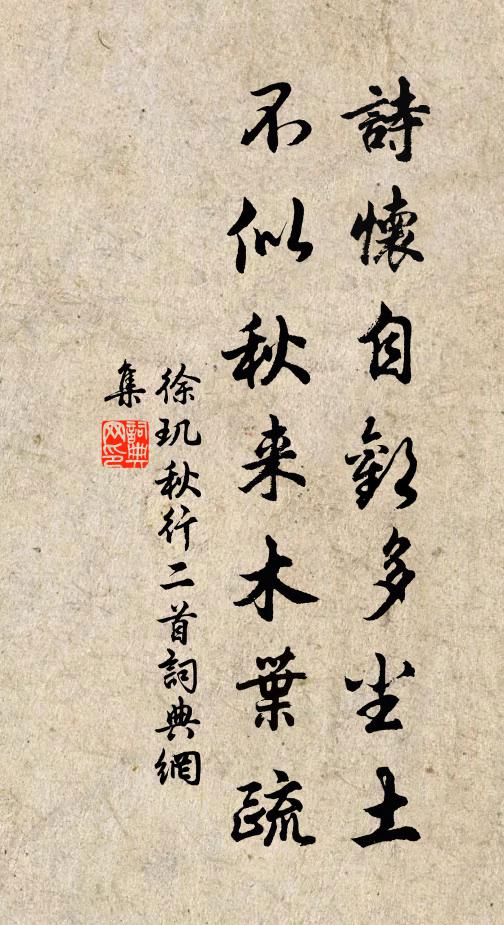 詩懷自歎多尘土
不似秋来木葉疏
徐玑秋行二首詞典網
集
詞典
网印